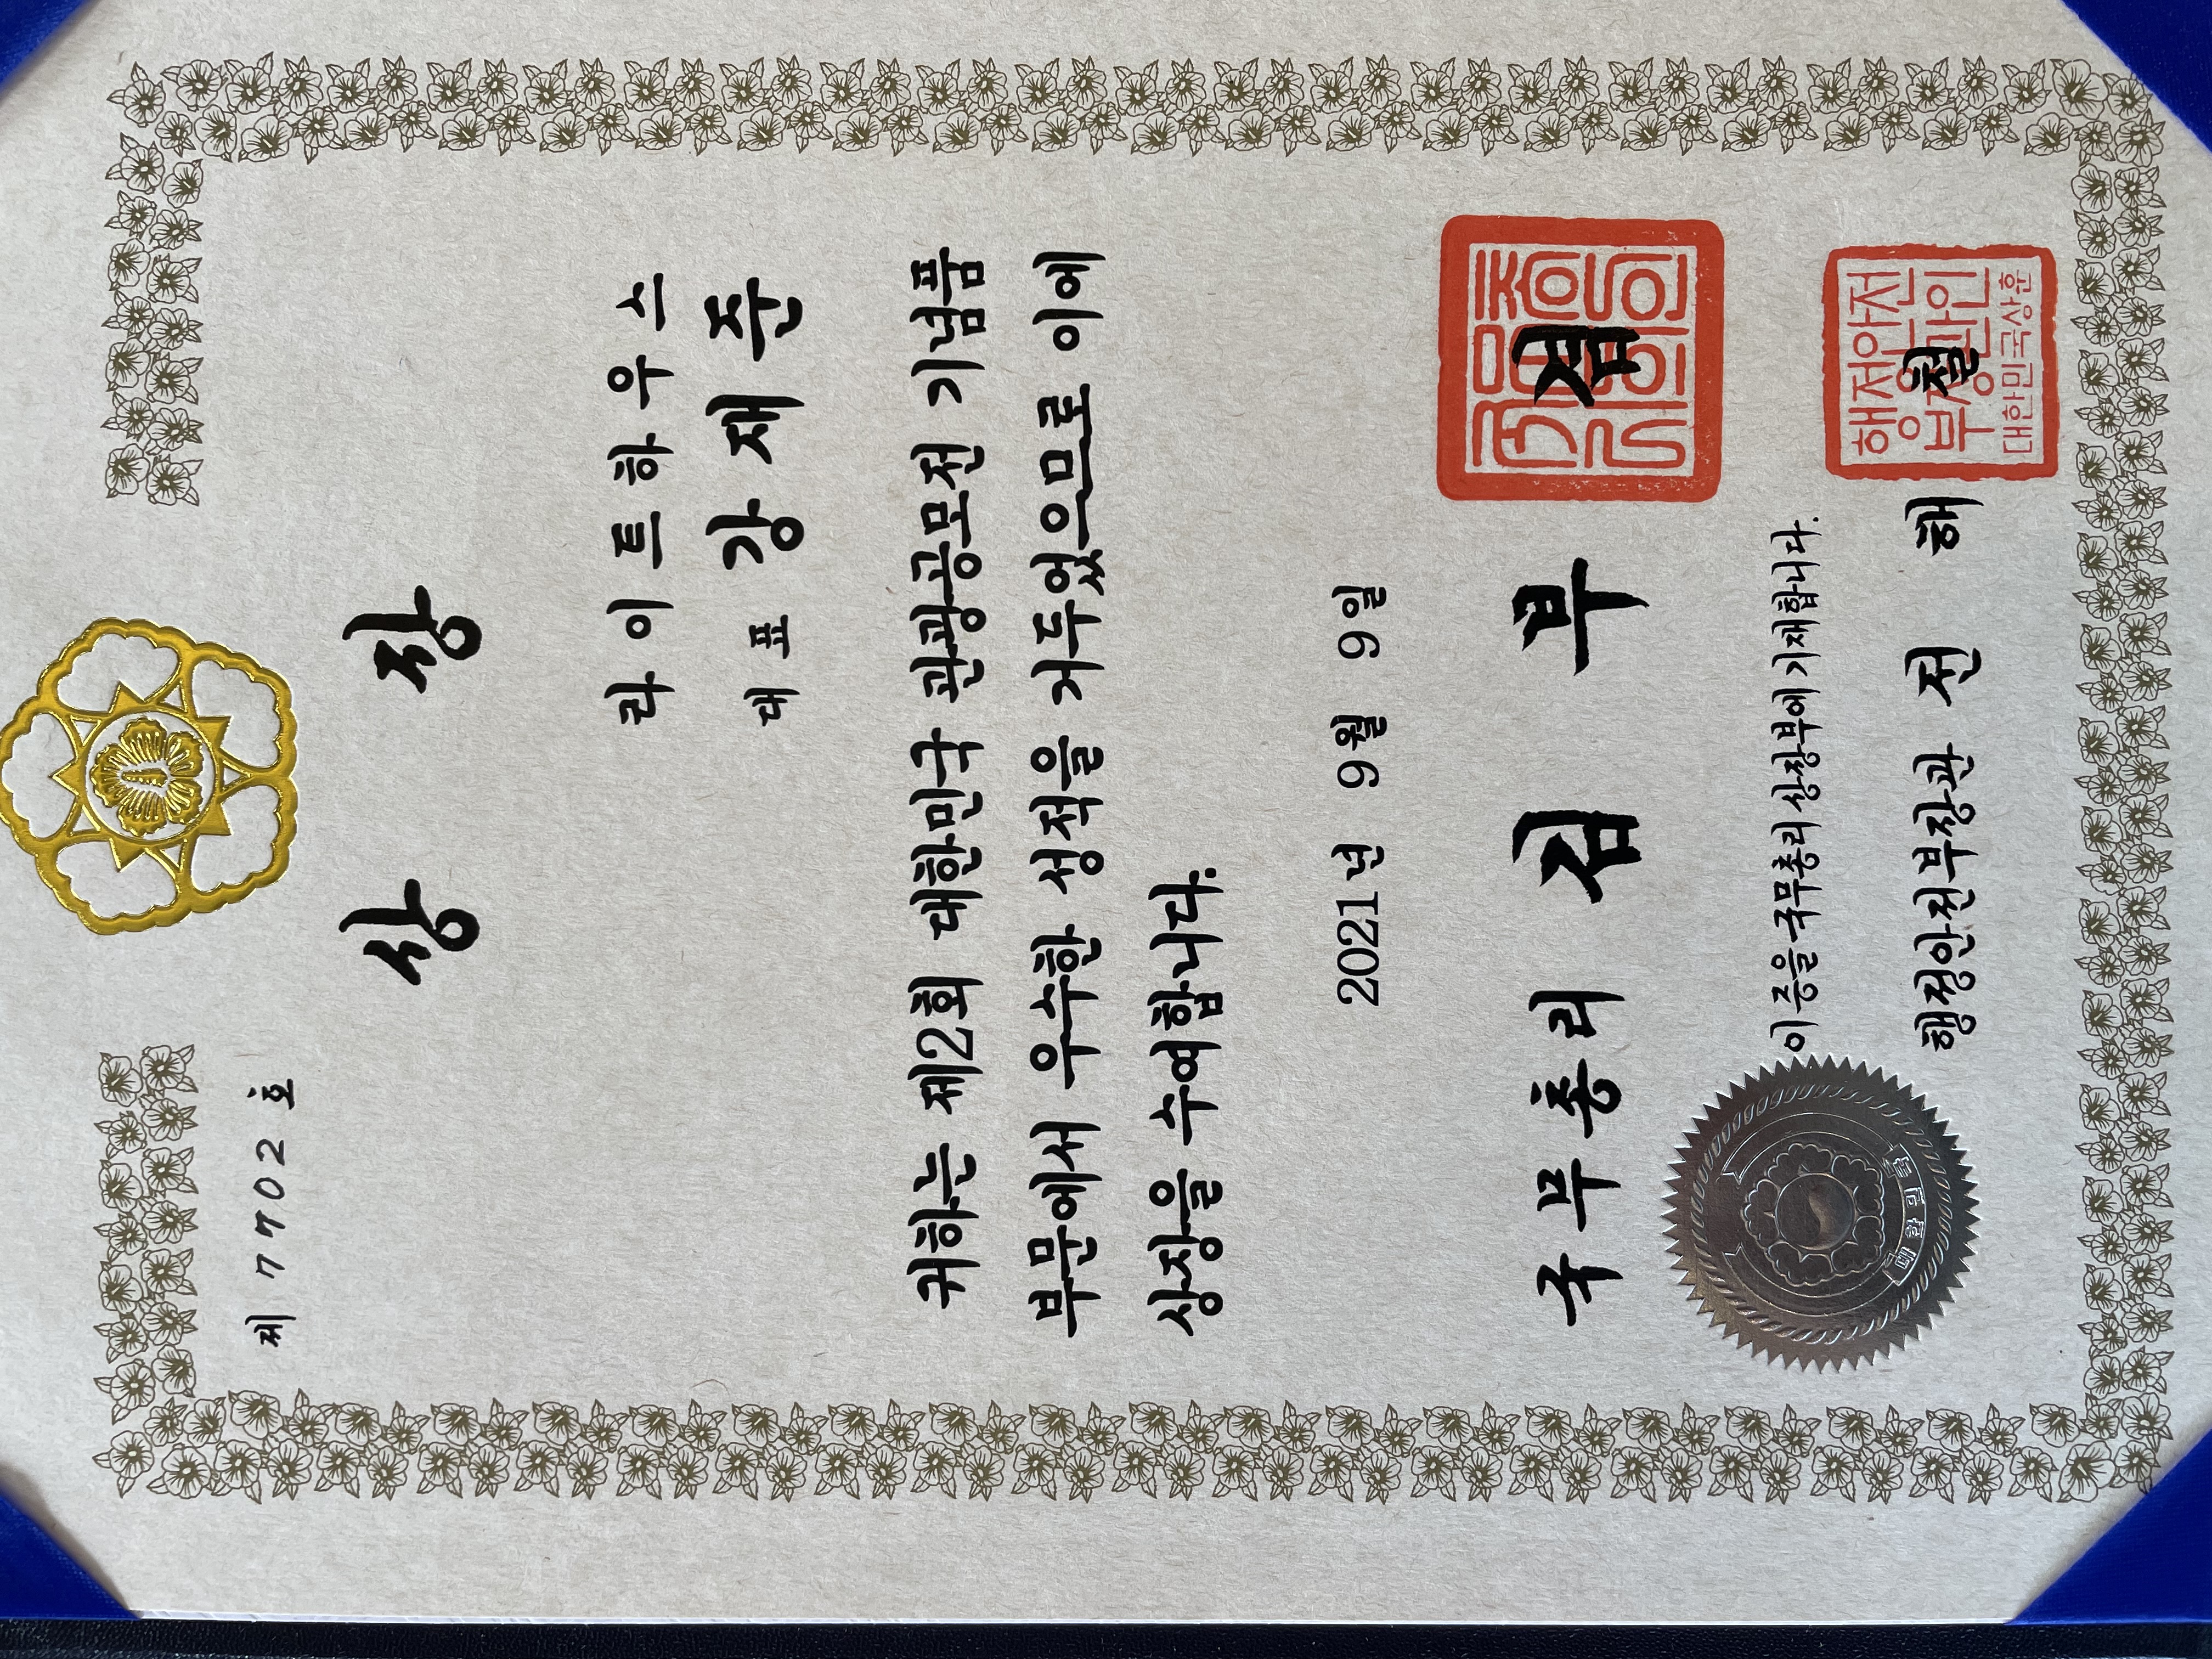 제 7702 호
상 장
라이트하우스
대표 강재준
귀하는 제2회 대한민국 관광공모전 기념품
부문에서 우수한 성적을 거두었으므로 이에
상장을 수여합니다.
2021년 9월 9일
국무총리 김부겸
이 증을 국무총리 상장부에 기재합니다.
행정안전부장관 전해철
대한민국
행정안전
부장관인
대한민국상훈